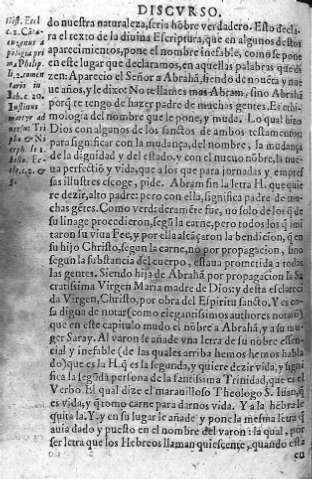 DISCVRSO.
do nuestra naturaleza, seria hõbre verdadero. Esto decla
ra el texto de la diuina Escriptura, que en algunos destos
aparecimientos, pone el nombre inefable, como se pone
en este lugar que declaramos, en aquellas palabras que di
zen: Aparecio el Señor a Abrahã, siendo de nouẽta y nue
ue años, y le dixo: No te llames mas Abram, sino Abrahã
porq̃ te tengo de hazer padre de muchas gentes. Es ethi-
mologia del nombre que le pone, y muda. Lo qual hizo
Dios con algunos de los sanctos de ambos testamentos:
para significar con la mudança, del nombre, la mudança
de la dignidad y del estado. y con el nueuo nõbre, la nue
ua perfectiõ y vida, que a los que para jornadas y empre
sas illustres escoge, pide. Abram sin la letra H. que quie
re dezir, alto padre: pero con ella, significa padre de mu-
chas gẽtes. Como verdaderamẽte fue, no solo de los q̃ de
su linage procedieron, segũ la carne, pero todos los q̃ imi
taron su viua Fee, y por ella alcãçaron la bendicion, q̃ en
su hijo Christo, segun la carne, nó por propagacion, sino
segun la substancia del cuerpo, estaua prometida a todas
las gentes. Siendo hija de Abrahã por propagacion la Sa
cratissima Virgen Maria madre de Dios: y desta esclareci
da Virgen, Christo, por obra del Espiritu sancto. Y es co-
sa digna de notar (como elegantissimos authores notarõ)
que en este capitulo mudo el nõbre a Abrahã, y a su mu-
ger Saray. Al varon se añade vna letra de su nobre essen-
cial y inefable (de las quales arriba hemos hemos habla
do) que es la H. q̃ es la segunda, y quiere dezir vida, y signi
fica la segũda persona de la santissima Trinidad, que es el
Verbo. El qual dize el marauilloso Theologo S. Iuan, q̃
es vida, y q̃ tomo carne para darnos vida. Y a la hebrea le
quita la. Y. y en su lugar le añade y pone la mesma letra q̃
auia dado y puesto en el nombre del varon: la qual, por
ser letra que los Hebreos llaman quiescente, quando esta
en